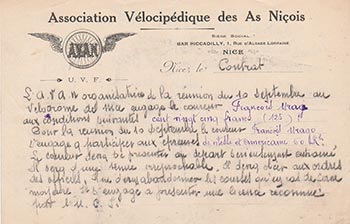 Association Vélocipédique des As Niçois
SIÈGE SOCIAL
BAR PICCADILLY, 1, Rue d'Alsace Lorraine
NICE
AVAN
U. V. F.
Nice, le Contrat
L'A.V.A.N organisatrice de la réunion du 10 septembre au
Vélodrome de Nice engage le coureur François Urago
aux conditions suivantes cent vingt cinq francs (125)
Pour la réunion du 10 septembre le coureur François Urago
s'engage à participer aux épreuves de vitesse et américaine 60 km
Le coureur devra se présenter au départ sérieusement entraîné
Il sera d'une tenue irréprochable. Il devra être aux ordres
des officiels et ne devra abandonner les courses qu'en cas de force
majeure. Il s'engage à présenter une licence reconnue
par l'U.C.I.